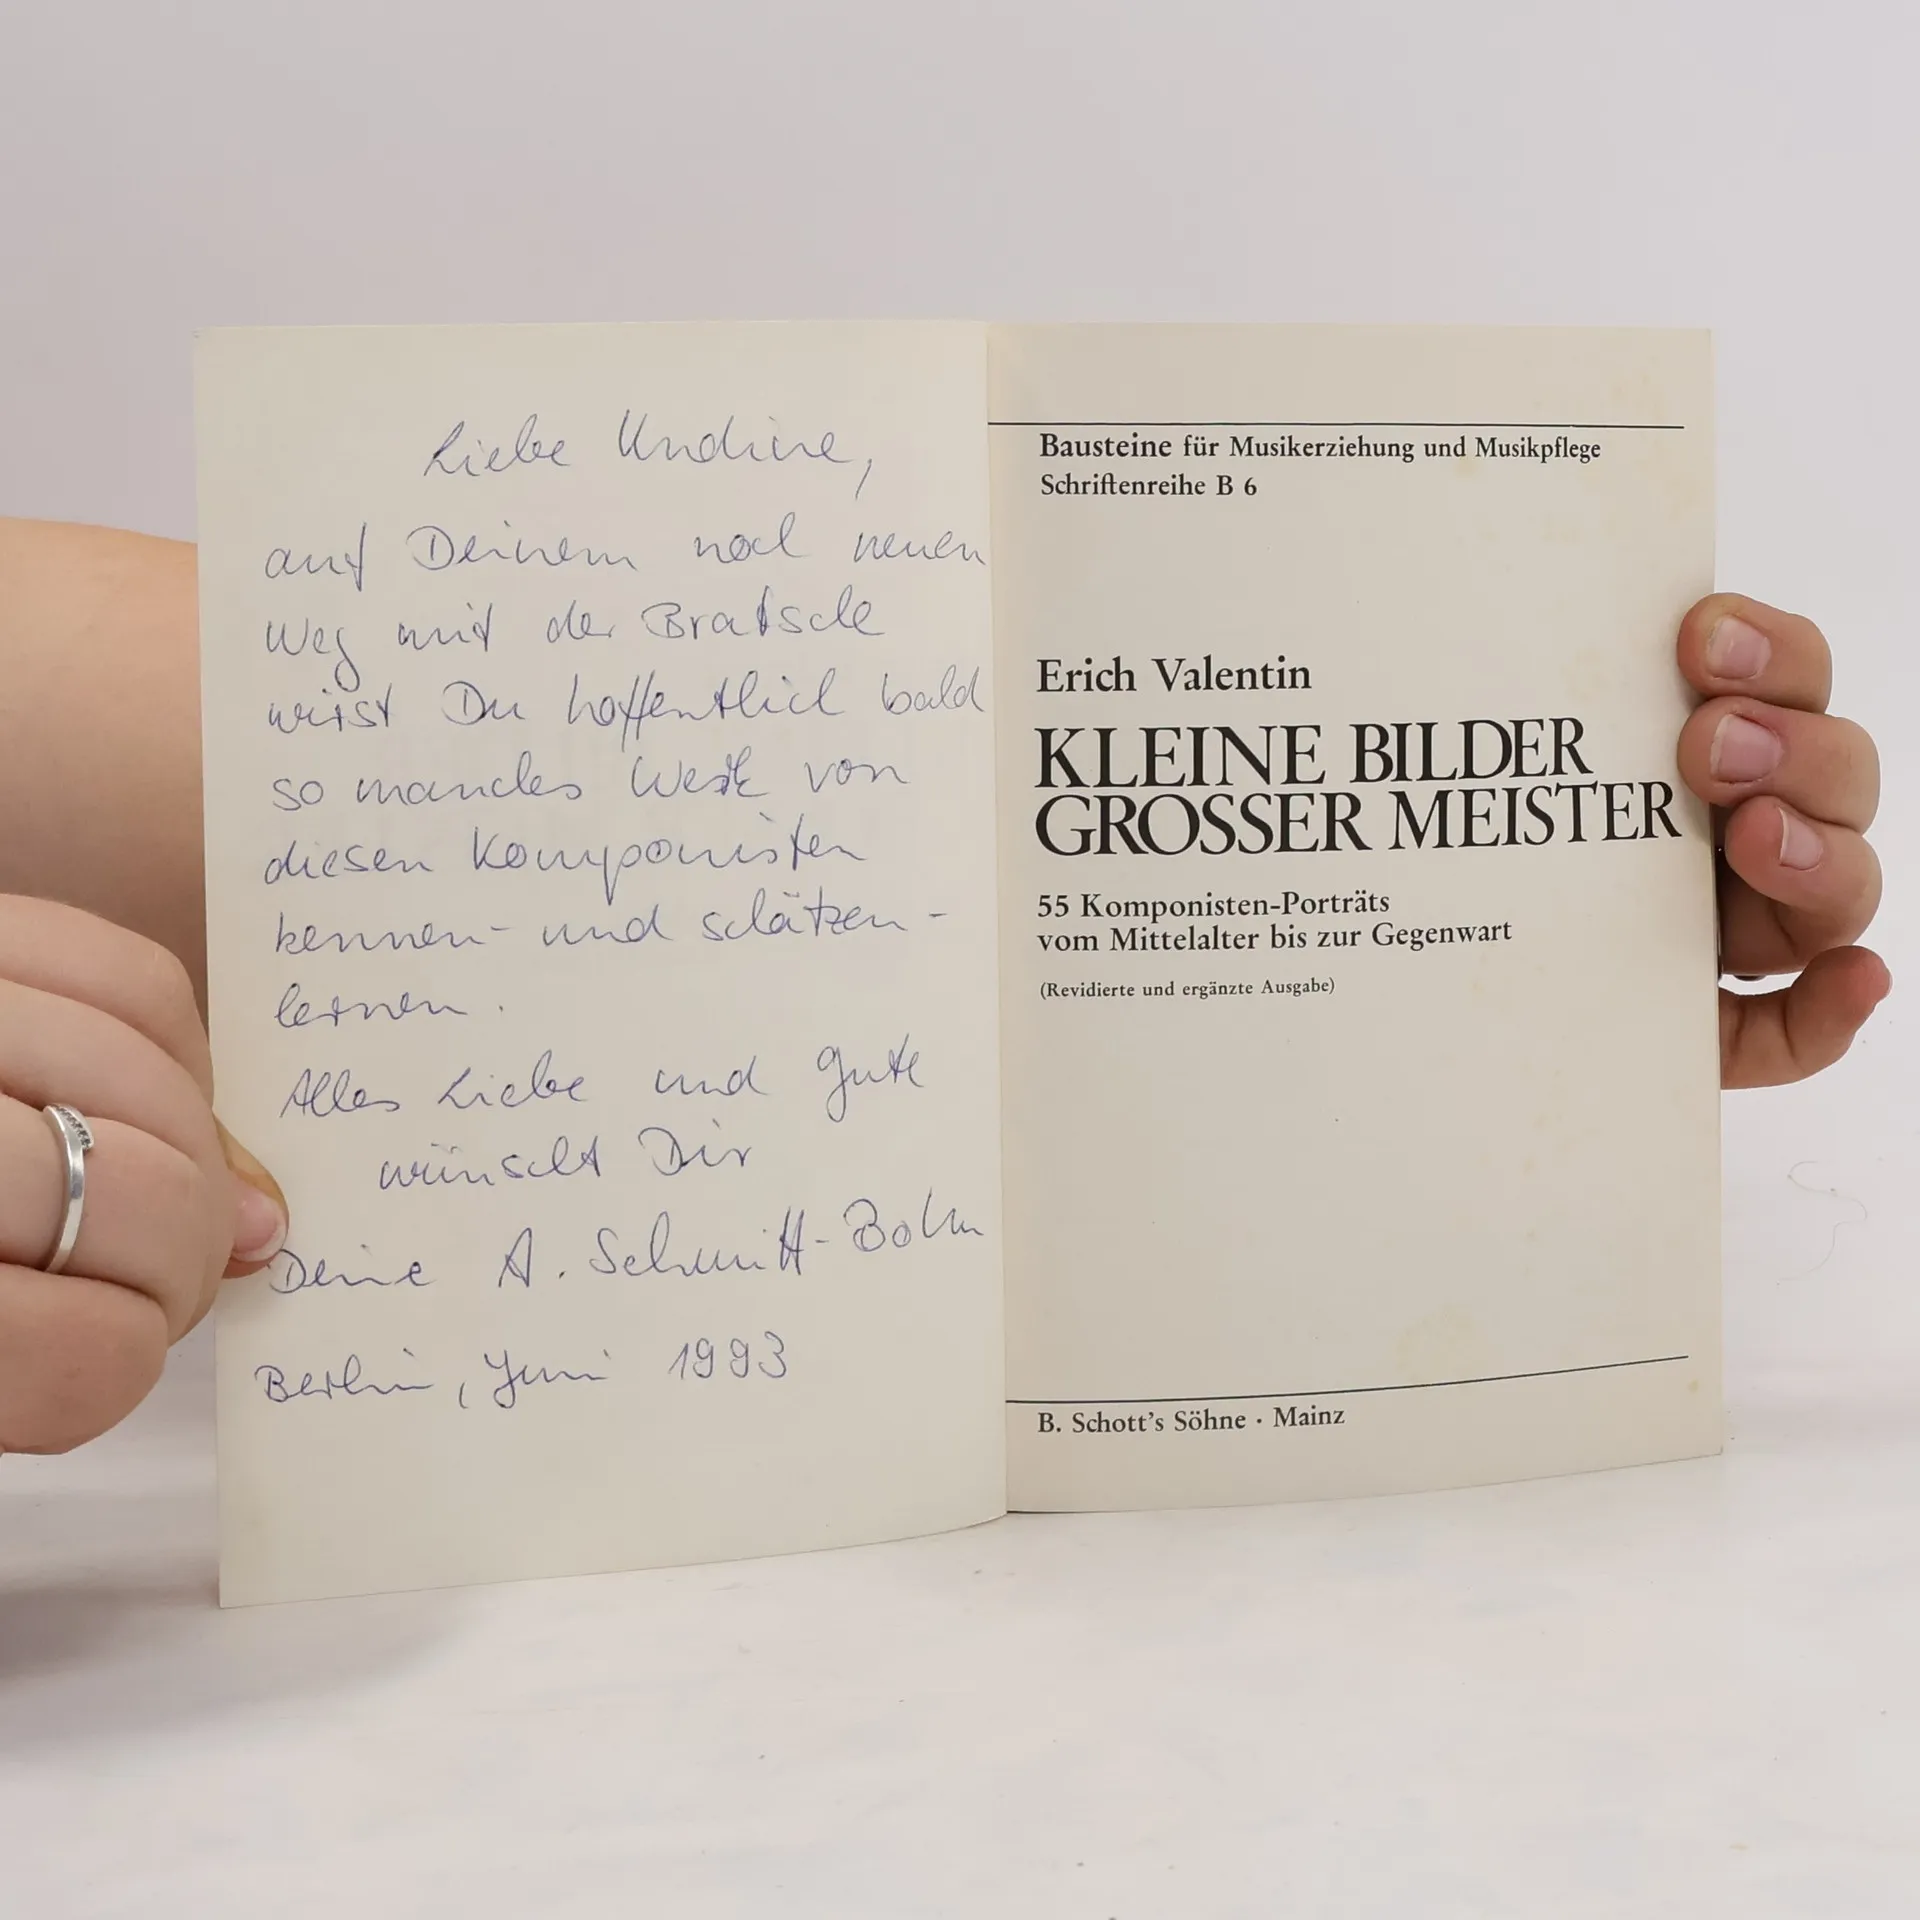 Liebe Undine,
auf Deinem noch neuen
Weg mit der Bratsche
wirst Du hoffentlich bald
so manches Werk von
diesen Komponisten
kennen- und schätzen-
lernen.
Alles Liebe und Gute
wünscht Dir
Deine A. Schmitt-Bohn
Berlin, Juni 1993
Bausteine für Musikerziehung und Musikpflege
Schriftenreihe B 6
Erich Valentin
KLEINE BILDER
GROSSER MEISTER
55 Komponisten-Porträts
vom Mittelalter bis zur Gegenwart
(Revidierte und ergänzte Ausgabe)
B. Schott's Söhne · Mainz